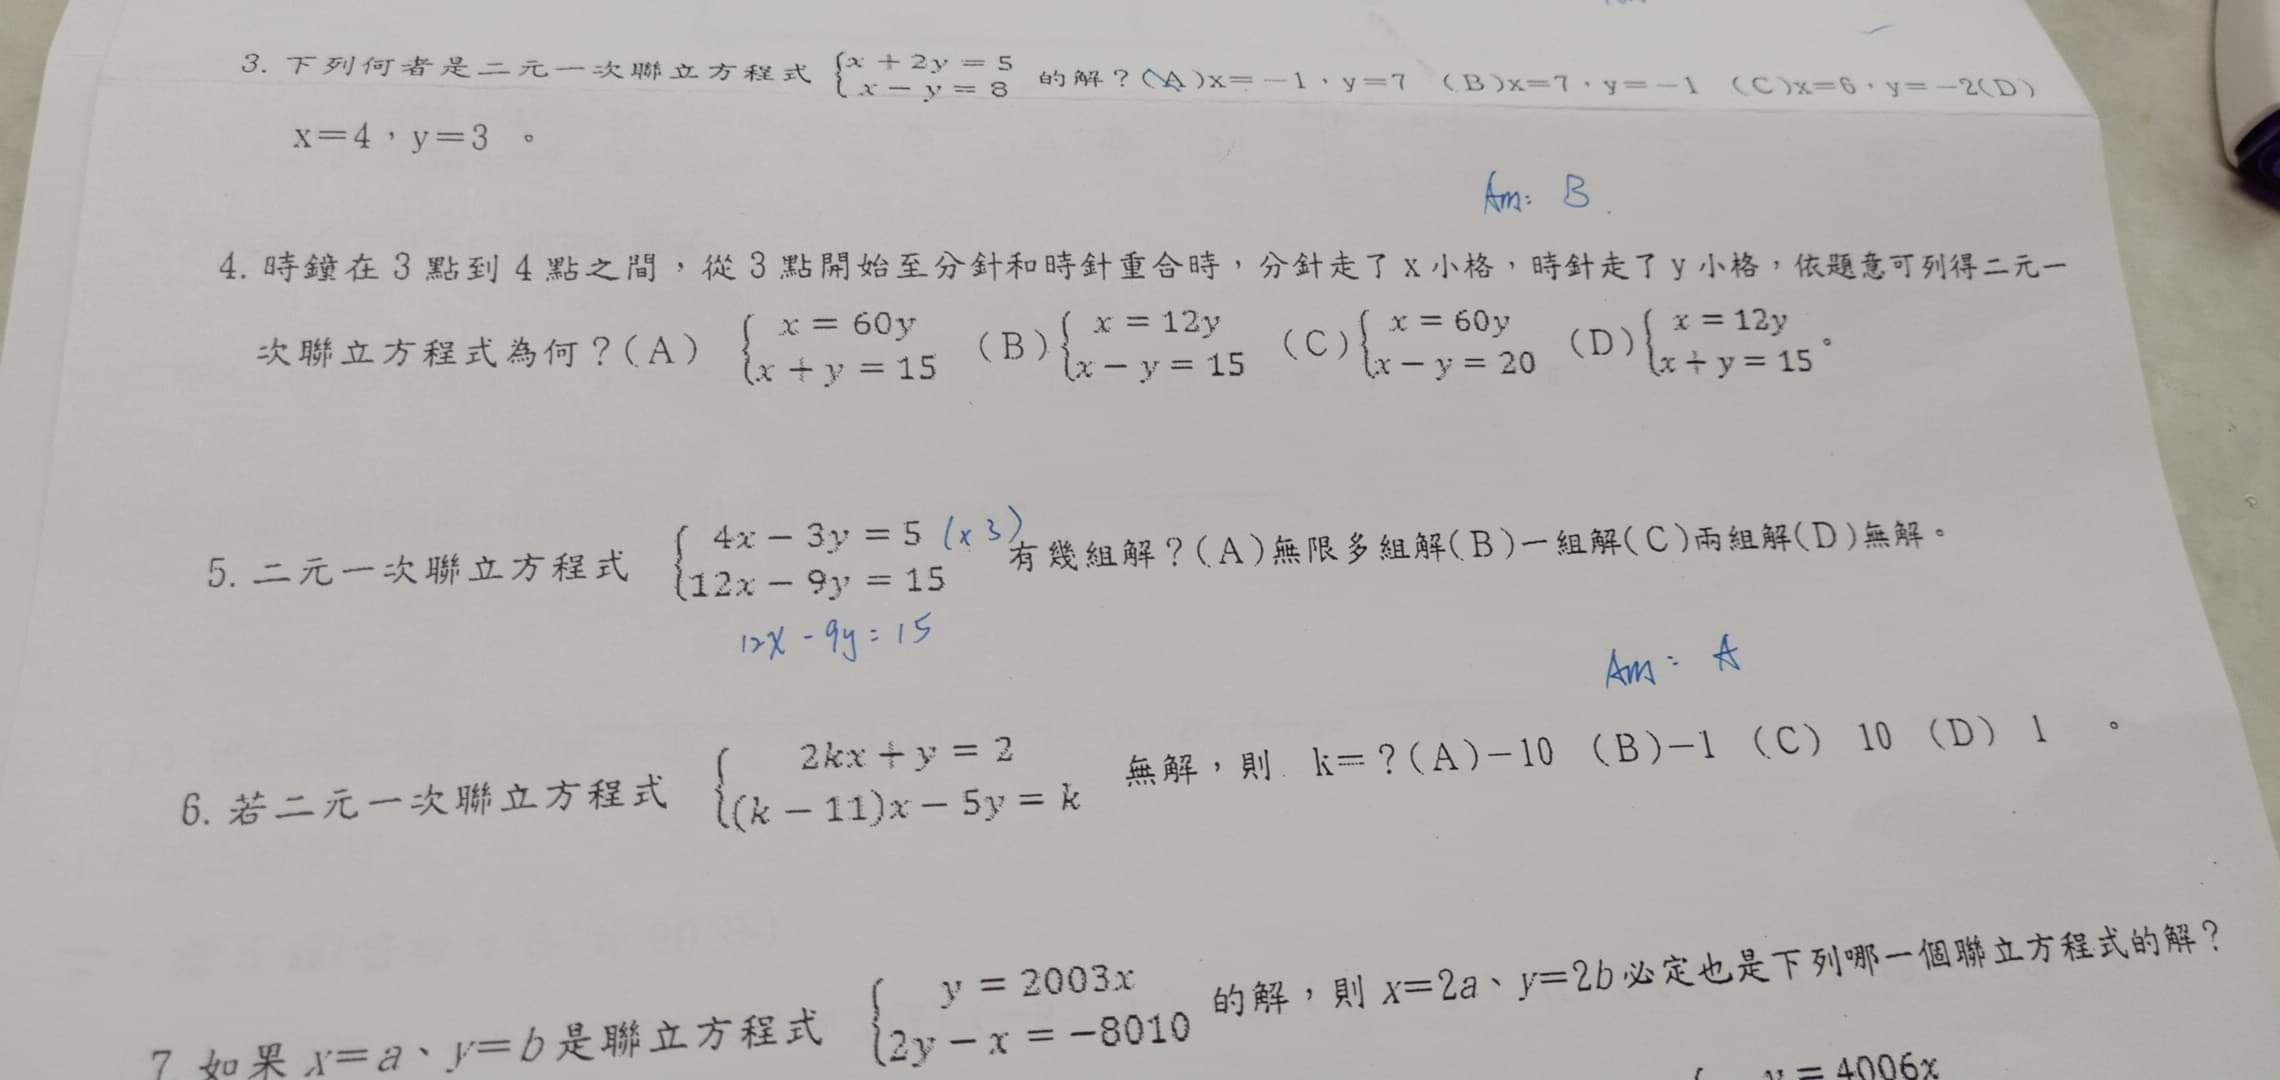 3. 下列何者是二元一次聯立方程式 {x + 2y = 5 的解？(A)x=－1，y=7 (B)x=7，y=－1 (C)x=6，y=－2(D)
x － y = 8
x=4，y=3 。
Ans: B.
4. 時鐘在 3 點到 4 點之間，從 3 點開始至分針和時針重合時，分針走了 x 小格，時針走了 y 小格，依題意可列得二元一
次聯立方程式為何？(A) {x = 60y (B) {x = 12y (C) {x = 60y (D) {x = 12y 。
x + y = 15 x － y = 15 x － y = 20 x + y = 15
5. 二元一次聯立方程式 {4x － 3y = 5 (x 3) 有幾組解？(A)無限多組解(B)一組解(C)兩組解(D)無解。
12x － 9y = 15
12x - 9y = 15
Ans: A
6. 若二元一次聯立方程式 {2kx + y = 2 無解，則 k=？(A)－10 (B)－1 (C) 10 (D) 1 。
(k － 11)x － 5y = k
7. 如果 x=a、y=b 是聯立方程式 {y = 2003x 的解，則 x=2a、y=2b 必定也是下列哪一個聯立方程式的解？
2y － x = －8010
y = 4006x